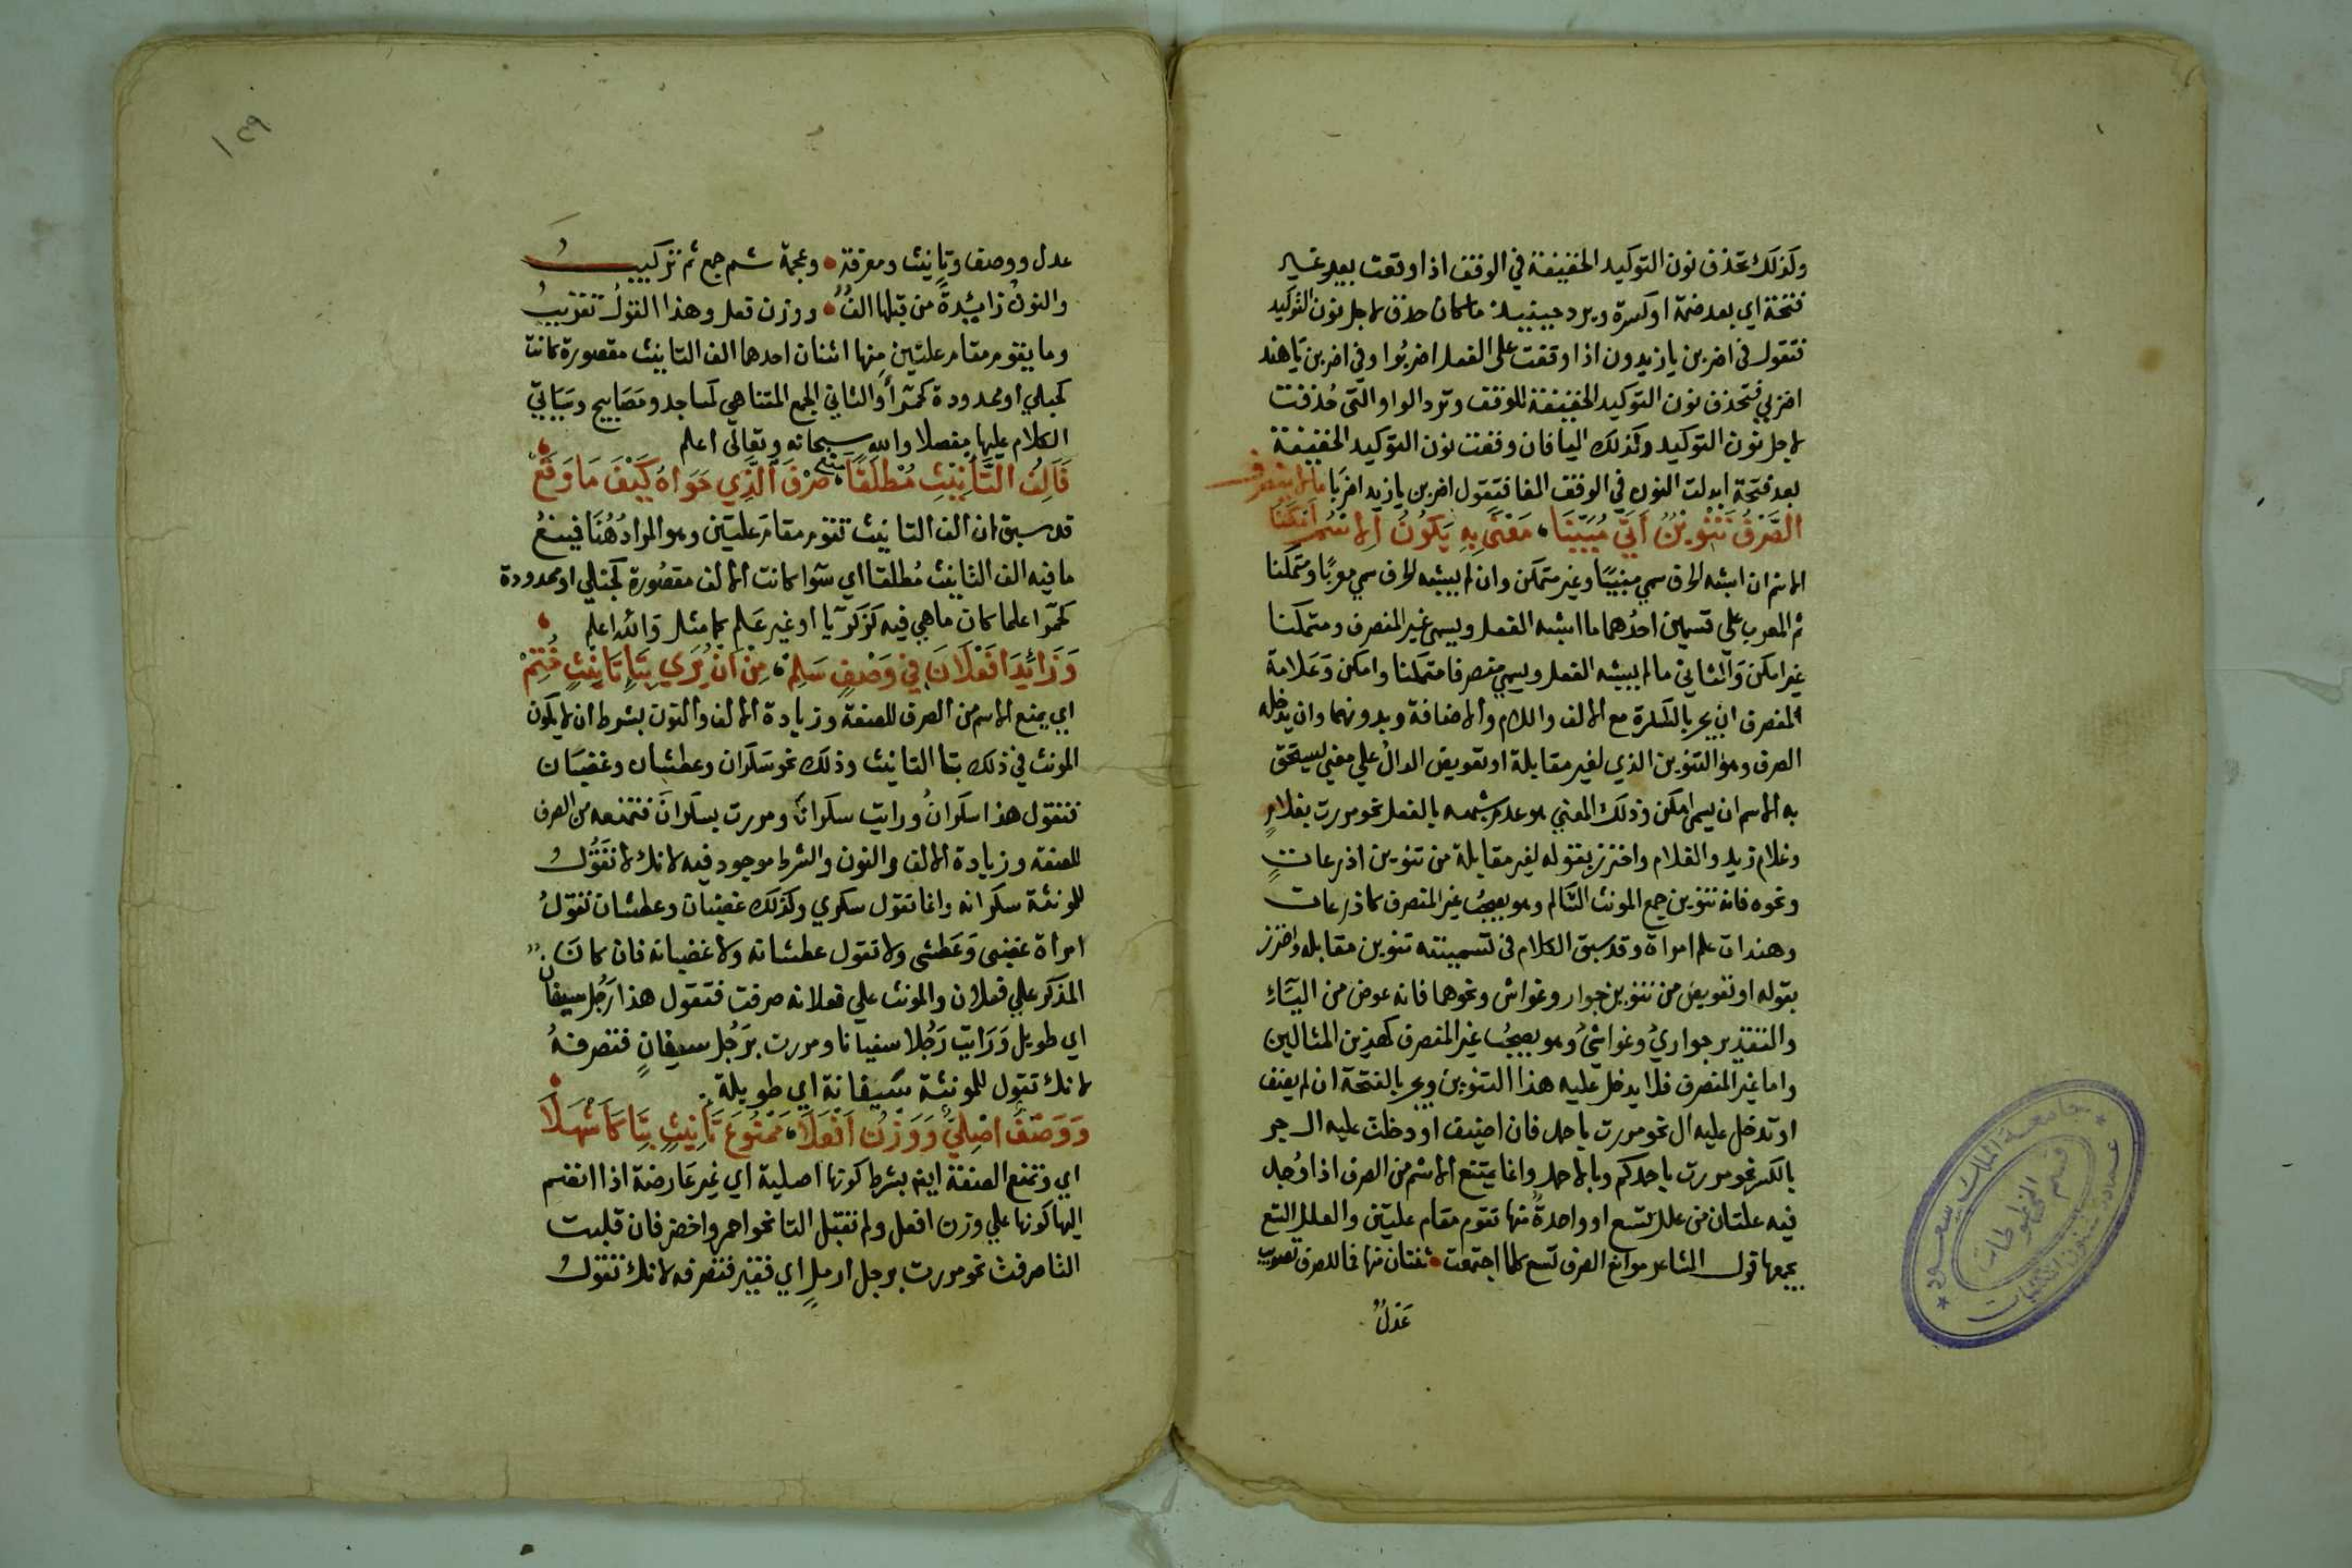 وكذلك تحذف نون التوكيد الخفيفة في الوقف اذا وقعت بعد غير
فتحة اي بعد ضمة او كسرة ويرد حينيذ ما كان حذف لاجل نون التوكيد
فتقول في اضربن يا زيدون اذا وقفت على الفعل اضربُوا وفي اضربن يَا هند
اضربي فتحذف نون التوكيد الخفيفة للوقف وترد الواو التي حُذفت
لاجل نون التوكيد وكذلك اليا فان وقفت نون التوكيد الخفيفة
بعد فتحة ابدلت النون في الوقف الفا فتقول اضربن يا زيد اضربَا مالا ينصرف
الصَّرْفُ تَنْوِيْنٌ اَتَى مُبَيِّنَا، مَعْنًى بِهِ يَكُونُ الاِسْمُ اَمْكَنَا
الاسم ان اشبه الحرف سمي مبنيًا وغير متمكن وان لم يشبه الحرف سمي معربًا ومتمكنا
ثم المعرب على قسمين احدُهما ما اشبه الفعل ويسمى غير المنصرف ومتمكنا
غير امكن وَالثاني ما لم يشبه الفعل ويسمي منصرفا متمكنا وامكن وَعَلامة
المنصرف ان يجر بالكسرة مع الالف واللام والاضافة وبدونهما وان يدخله
الصرف وهو التنوين الذي لغير مقابلة او تعويض الدالُ علي معني يستحق
به الاسم ان يسمى امكن وذلك المعني هو عدم شبهه بالفعل نحو مررت بغلامٍ
وغلام زيد والغلام واحترز بقوله لغير مقابلة من تنوين اذرعاتٍ
ونحوه فانه تنوين جمع المونث السَّالم وهو يصحبُ غير المنصرف كاذرعات
وهندات علم امراة وقد سبق الكلام في تسميته تنوين مقابله واحترز
بقوله او تعويض من تنوين جوار وغواش ونحوهما فانه عوض من اليَّاءِ
والتقدير جواريُ وغواشيُ وهو يصحبُ غير المنصرف كهذين المثالين
واما غير المنصرف فلا يدخل عليه هذا التنوين ويجر بالفتحة ان لم يضف
او تدخل عليه ال نحو مررت باحمد فان اضيف او دخلت عليه ال جر
بالكسر نحو مررت باحمدكم وبالاحمد وانما يمتنع الاسم من الصرف اذا وُجد
فيه علتان من علل تسع او واحدةٌ منها تقوم مقام علتين والعلل التسع
يجمعها قول الشاعر موانع الصرف تسع كلما اجتمعت • ثنتان منها فما للصرف تصويب
عَدلٌ
١٣٩
عدل ووصف وتانيث ومعرفة • وعجمة ثم جمع ثم تركيبُ
والنونُ زايدةً من قبلها الفٌ • ووزن فعل وهذا القولُ تقريبُ
وما يقوم مقام علتين مِنها اثنان احدهما الف التانيث مقصورة كانت
كحبلي او ممدودة كحمرا وَالثاني الجمع المتناهي كمساجد ومَصَابيح وسَيَاتي
الكلام عليها مفصلا والله سبحانه وتعالى اعلم
فَاَلِفُ التَّأْنِيْثِ مُطْلَقًا مَنَعْ، صَرْفَ الَّذِي حَوَاهُ كَيْفَ مَا وَقَعْ
قد سبق ان الف التانيث تقوم مقامَ علتين وهو المرادُ هُنَا فيمنعُ
ما فيه الف التانيث مُطلقا اي سَوا كانت الالف مقصُورة كحبلي او ممدودة
كحمَرا علما كان ما هي فيه كزَكريّا او غير عَلم كما مثل وَالله اعلم
وَزَائِدَا فَعْلَانَ فِي وَصْفٍ سَلِمْ، مِنْ اَنْ يُرَي بِتَاءِ تَانِيْثٍ خُتِمْ
اي يمنع الاسم من الصرف للصفة وزيادة الالف والنون بشرط ان لا يكون
المونث في ذلك بتا التانيث وذلك نحو سَكران وعطشان وغضبَان
فتقول هذا سكرانُ ورايت سكرانَ ومررت بسكرانَ فتمنعه من الصرف
للصفة وزيادة الالف والنون والشرط موجود فيه لانك لا تقُولُ
للمونثة سكرانه وانما تقول سكري وكذلك غضبان وعطشان تقولُ
امراة غضبى وَعَطشى ولا تقول عطشانه ولا غضبانه فان كانَ
المذكر علي فعلان والمونث علي فعلانه صرفت فتقول هذا رَجُل سيفان
اي طويل وَرَايت رَجُلا سفيانا ومررت برَجُل سيفانٍ فتصرفهُ
لانك تقول للمونثة سَيفانة اي طويلة
وَوَصْفٌ اَصْلِيٌّ وَوَزْنُ اَفْعَلَا، مَمْنُوعَ تَأْنِيْثٍ بِتَا كَاَشْهَلَا
اي وتمنع الصفة ايضا بشرط كونها اصلية اي غير عَارضة اذا انضم
اليها كونها علي وزن افعل ولم تقبل التا نحو احمر واخضر فان قبلت
التا صرفت نحو مررت برجل ارملٍ اي فقير فتصرفه لانك تقولُ
جامعة الملك سعود
عمادة شئون المكتبات
قسم المخطوطات